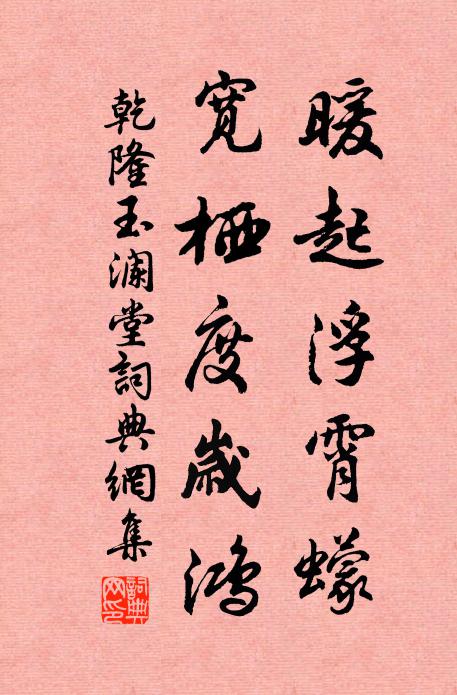 暖起浮霄蠓
寬栖度歲鴻
乾隆玉瀾堂詞典網集
詞典網印